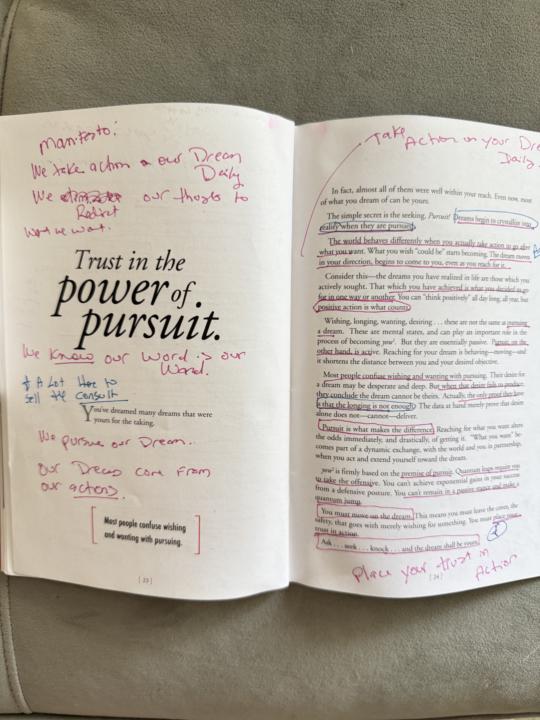 manifesto:
We take action on our Dream
Daily
We our thoughts to
Redirect
what we want.
Trust in the
power of
pursuit.
We Know our word is our
Word.
# A Lot Here to
sell the consult
You've dreamed many dreams that were
yours for the taking.
We pursue our Dream.
Our Dreams come from
our actions.
Most people confuse wishing
and wanting with pursuing.
[ 23 ]
Take
Action on your
Daily.
In fact, almost all of them were well within your reach. Even now, most
of what you dream of can be yours.
The simple secret is the seeking. Pursuit! Dreams begin to crystallize into
reality when they are pursued.
The world behaves differently when you actually take action to go after
what you want. What you wish "could be" starts becoming. The dream moves
in your direction, begins to come to you, even as you reach for it.
it shortens the distance between you and your desired objective.
Consider this—the dreams you have realized in life are those which you
actively sought. That which you have achieved is what you decided to go
for in one way or another. You can "think positively" all day long, all year, but
positive action is what counts.
Wishing, longing, wanting, desiring . . . these are not the same as pursuing
a dream. These are mental states, and can play an important role in the
process of becoming you². But they are essentially passive. Pursuit, on the
other hand, is active. Reaching for your dream is behaving—moving—and
it shortens the distance between you and your desired objective.
Most people confuse wishing and wanting with pursuing. Their desire for
a dream may be desperate and deep. But when that desire fails to produce,
they conclude the dream cannot be theirs. Actually, the only proof they have
is that the longing is not enough. The data at hand merely prove that desire
alone does not—cannot—deliver.
Pursuit is what makes the difference. Reaching for what you want alters
the odds immediately, and drastically, of getting it. "What you want" be-
comes part of a dynamic exchange, with the world and you in partnership,
when you act and extend yourself toward the dream.
you² is firmly based on the premise of pursuit. Quantum leaps require you
to take the offensive. You can't achieve exponential gains in your success
from a defensive posture. You can't remain in a passive stance and make a
quantum jump.
You must move on the dream. This means you must leave the cover, the
safety, that goes with merely wishing for something. You must place your
trust in action.
Ask . . . seek . . . knock . . . and the dream shall be yours.
[ 24 ]
Place your trust in
Action